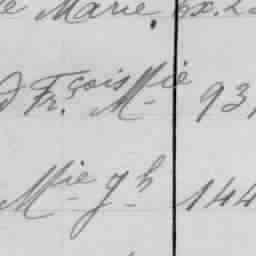 e Marie. Ex. 2
d Fr.çois Mie 93
Mie Jh 144